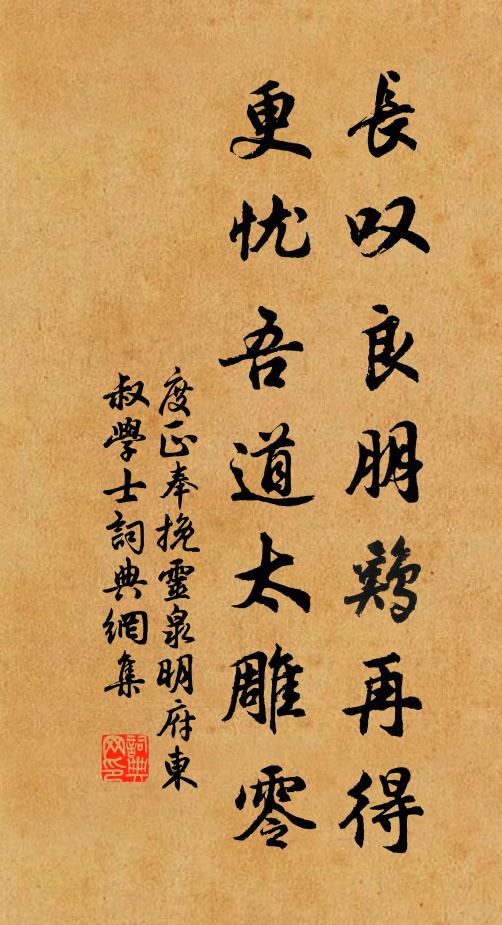 長叹良朋難再得
更忧吾道太雕零
度正奉挽靈泉明府東
叔學士詞典網集
詞典
网印